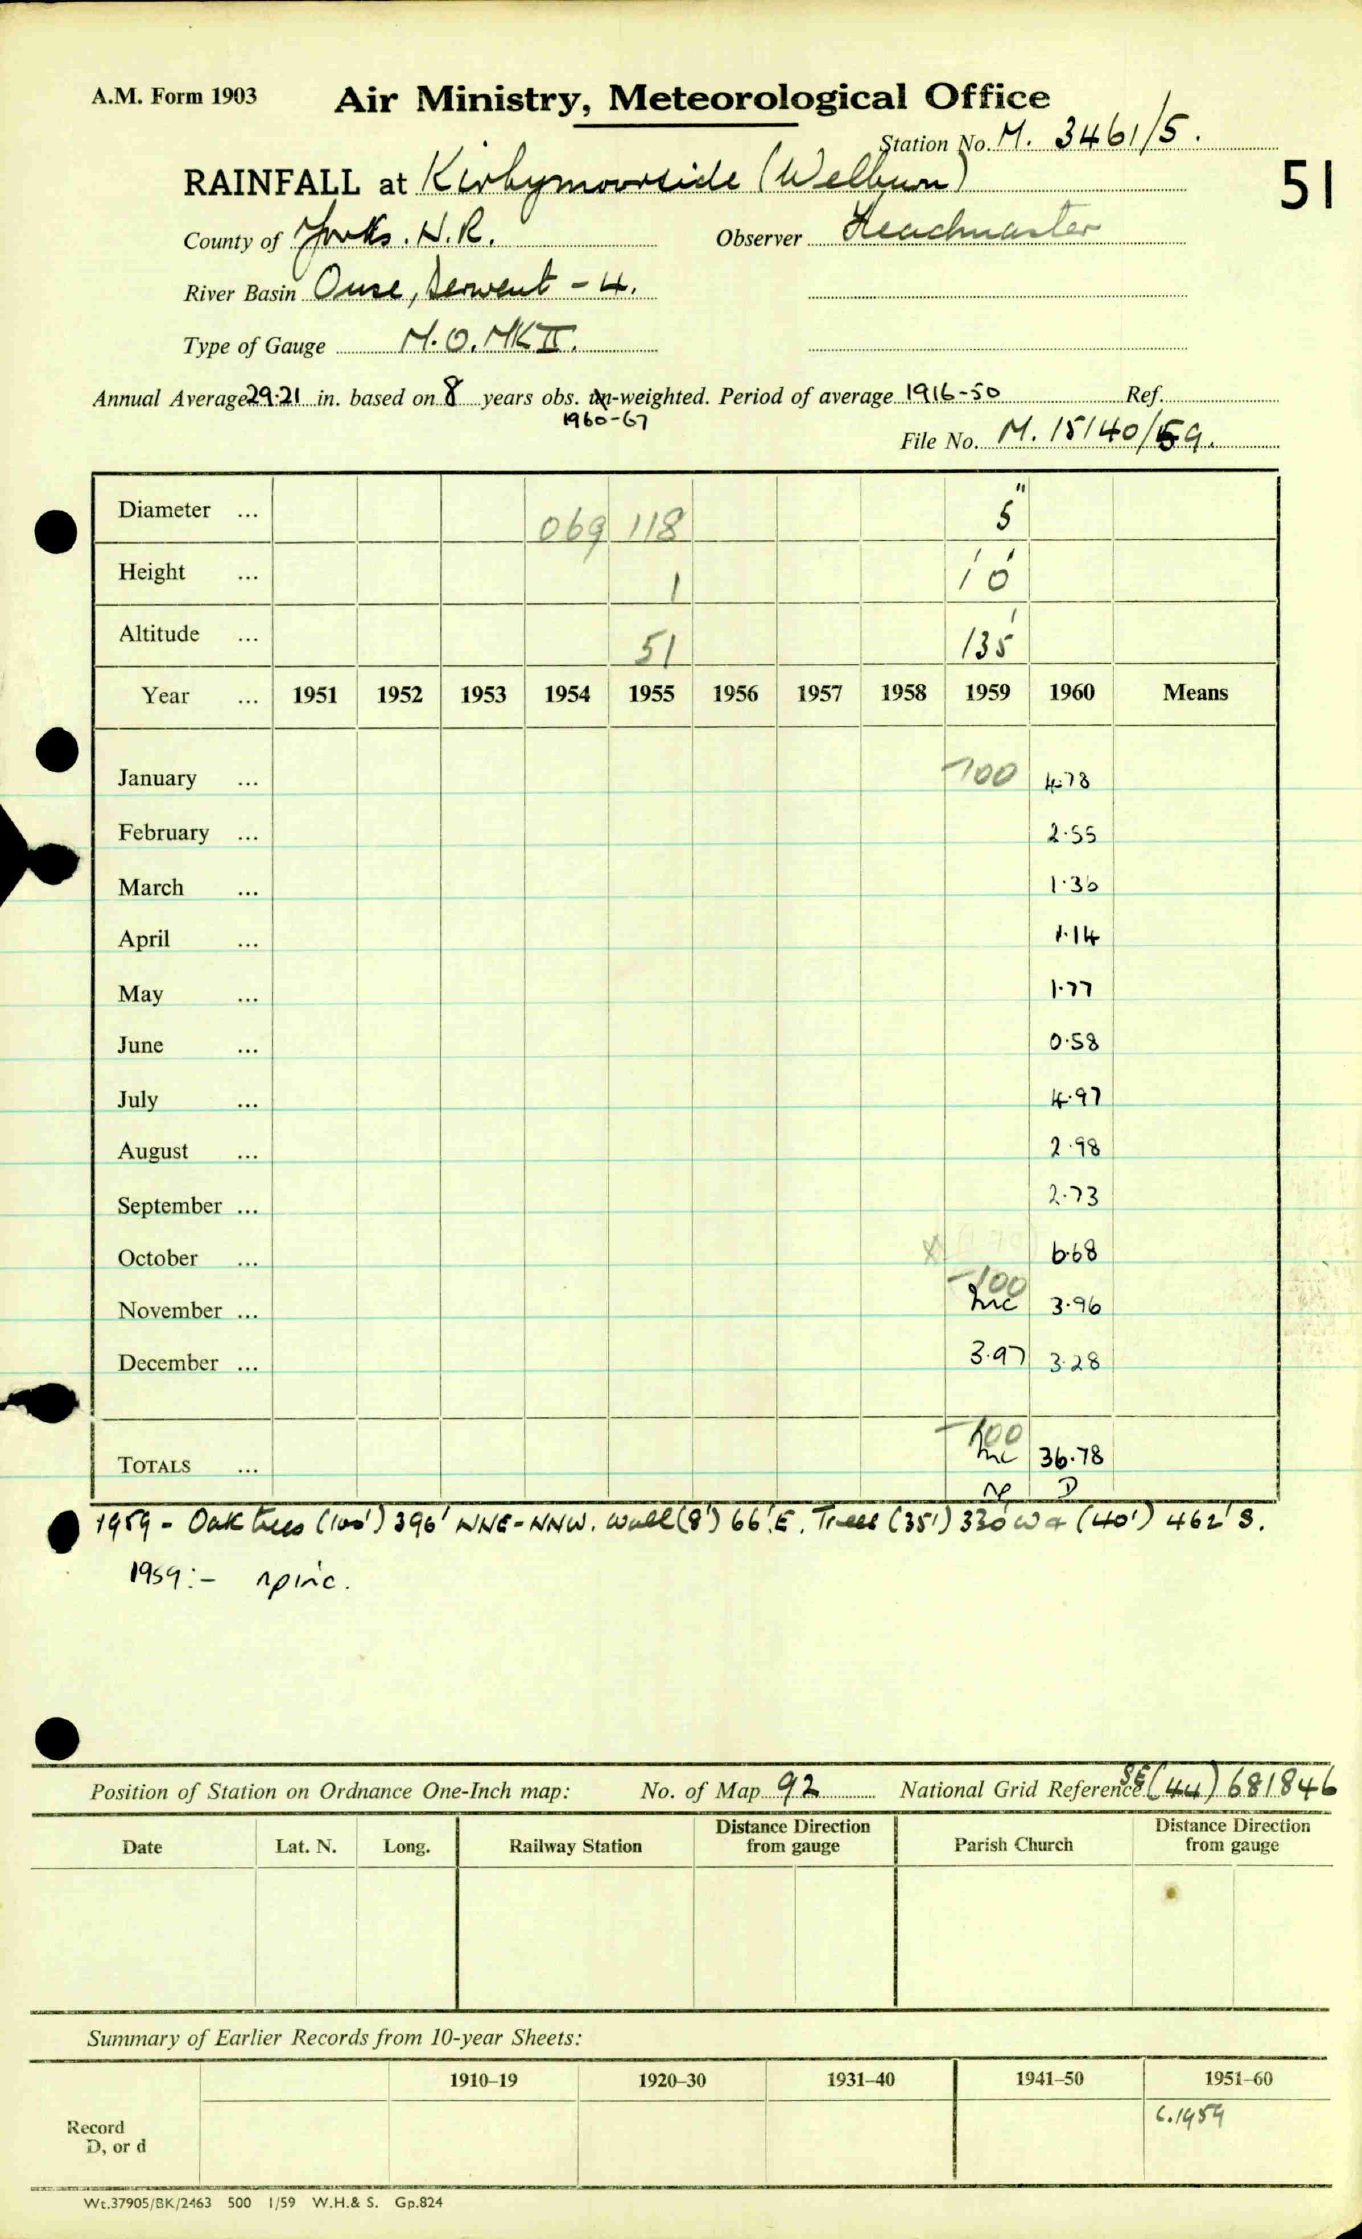 A.M. Form 1903
Air Ministry, Meteorological Office
Station No. M. 3461/5.
51
RAINFALL at Kirbymoorside (Welburn)
County of Yorks. N.R. Observer Headmaster
River Basin Ouse, Derwent - 4.
Type of Gauge M.O. MK II.
Annual Average 29.21 in. based on 8 years obs. un-weighted. Period of average 1916-50 Ref.
1960-67
File No. M. 15140/59.
Diameter ... 069 118 5"
Height ... 1 1' 0"
Altitude ... 51 135'
Year ... 1951 1952 1953 1954 1955 1956 1957 1958 1959 1960 Means
January ... -100 4.78
February ... 2.55
March ... 1.36
April ... 1.14
May ... 1.77
June ... 0.58
July ... 4.97
August ... 2.98
September ... 2.73
October ... 6.68
-100
November ... Inc 3.96
December ... 3.97 3.28
-100
TOTALS ... Inc 36.78
np D
1959 - Oak trees (100') 396' NNE-NNW. Wall (8') 66' E. Trees (35') 330' W & (40') 462' S.
1959:- np inc.
Position of Station on Ordnance One-Inch map: No. of Map 92 National Grid Reference SE (44) 681846
Date Lat. N. Long. Railway Station Distance Direction from gauge Parish Church Distance Direction from gauge
Summary of Earlier Records from 10-year Sheets:
1910–19 1920–30 1931–40 1941–50 1951–60
Record
D, or d
c.1959
Wt.37905/BK/2463 500 1/59 W.H.& S. Gp.824